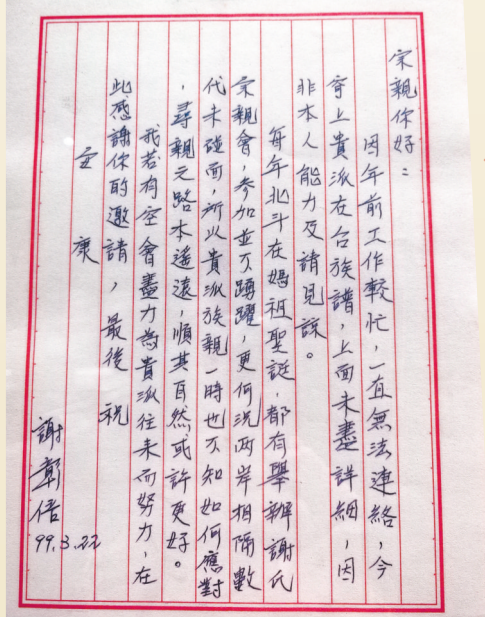 宗親你好：
因年前工作較忙，一直無法連絡，今
寄上貴派在台族譜，上面未盡詳細，因
非本人能力及請見諒。
每年北斗在媽祖聖誕，都有舉辦謝氏
宗親會，參加並不踴躍，更何況兩岸相隔數
代未碰面，所以貴派族親一時也不知如何應對
，尋親之路本遙遠，順其自然或許更好。
我若有空會盡力為貴派往來而努力，在
此感謝你的邀請，最後 祝
安 康
謝彰
99.3.22